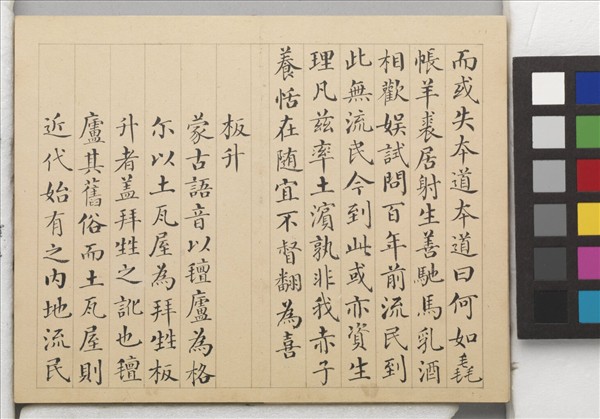 而或失本道本道曰何如毳
帳羊裘居射生善馳馬乳酒
相歡娛試問百年前流民到
此無流民今到此或亦資生
理凡茲率土濱孰非我赤子
養恬在随宜不督翻為喜
板升
蒙古語音以氊廬為格
尔以土瓦屋為拜甡板
升者盖拜甡之訛也氊
廬其舊俗而土瓦屋則
近代始有之内地流民